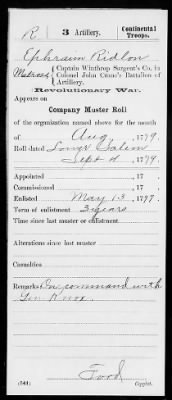 R | 3 Artillery. | Continental Troops.
Ephraim Ridlon
Matross { Captain Winthrop Sargent's Co. in Colonel John Crane's Battalion of Artillery.
Revolutionary War.
Appears on
Company Muster Roll
of the organization named above for the month
of Aug, 1779.
Roll dated Lower Salem
Sept 4, 1779.
Appointed , 17
Commissioned , 17
Enlisted May 13, 1777.
Term of enlistment 3 years
Time since last muster or enlistment
Alterations since last muster
Casualties
Remarks: On command with
Gen Knox.
Ford
(541) Copyist.